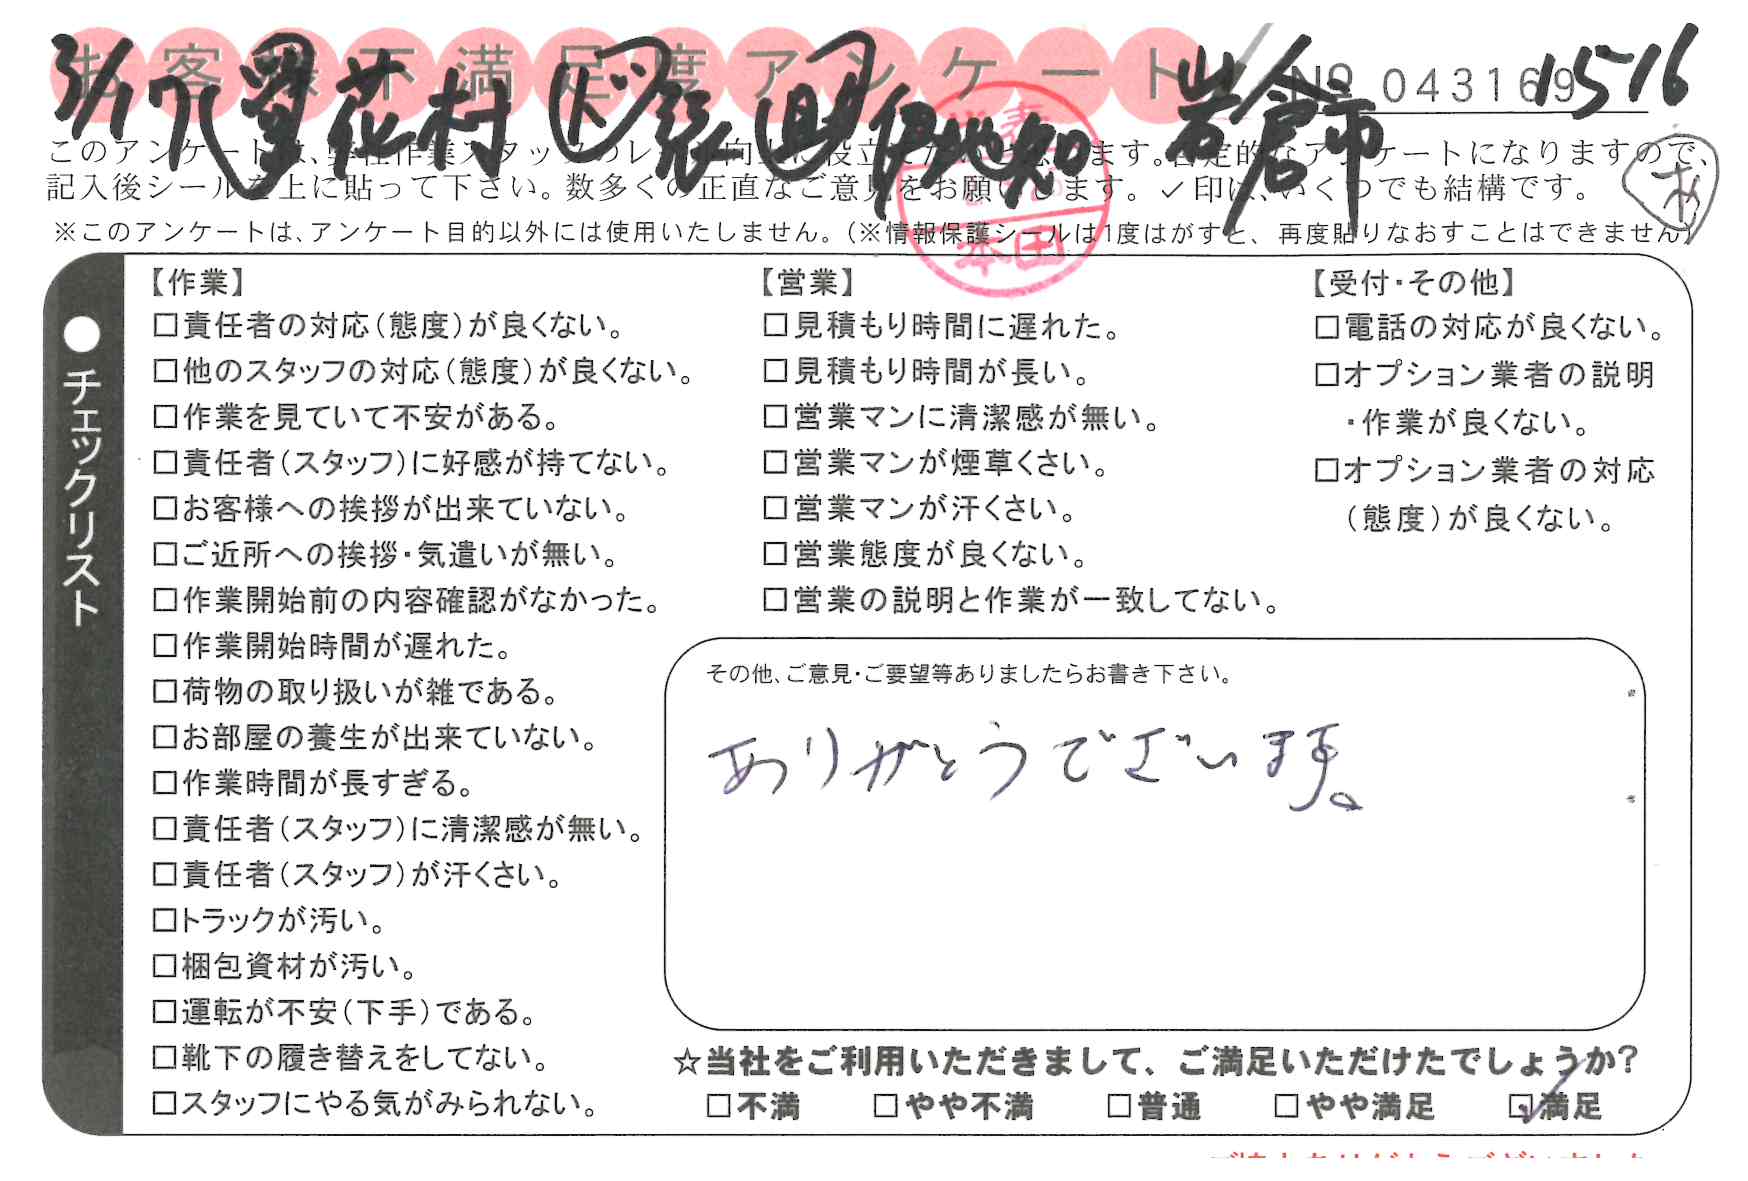 お客様不満足度アンケート No 043169
3/17 花村 伊地知 岩倉市 15-16
このアンケートは、弊社作業スタッフのレベル向上に役立てたいと思います。否定的なアンケートになりますので、
記入後シールを上に貼って下さい。数多くの正直なご意見をお願いします。✓印は、いくつでも結構です。
あ
※このアンケートは、アンケート目的以外には使用いたしません。(※情報保護シールは1度はがすと、再度貼りなおすことはできません)
本田
●チェックリスト
【作業】
□責任者の対応(態度)が良くない。
□他のスタッフの対応(態度)が良くない。
□作業を見ていて不安がある。
□責任者(スタッフ)に好感が持てない。
□お客様への挨拶が出来ていない。
□ご近所への挨拶・気遣いが無い。
□作業開始前の内容確認がなかった。
□作業開始時間が遅れた。
□荷物の取り扱いが雑である。
□お部屋の養生が出来ていない。
□作業時間が長すぎる。
□責任者(スタッフ)に清潔感が無い。
□責任者(スタッフ)が汗くさい。
□トラックが汚い。
□梱包資材が汚い。
□運転が不安(下手)である。
□靴下の履き替えをしてない。
□スタッフにやる気がみられない。
【営業】
□見積もり時間に遅れた。
□見積もり時間が長い。
□営業マンに清潔感が無い。
□営業マンが煙草くさい。
□営業マンが汗くさい。
□営業態度が良くない。
□営業の説明と作業が一致してない。
【受付・その他】
□電話の対応が良くない。
□オプション業者の説明
・作業が良くない。
□オプション業者の対応
(態度)が良くない。
その他、ご意見・ご要望等ありましたらお書き下さい。
ありがとうございます。
☆当社をご利用いただきまして、ご満足いただけたでしょうか?
□不満 □やや不満 □普通 □やや満足 ☑満足